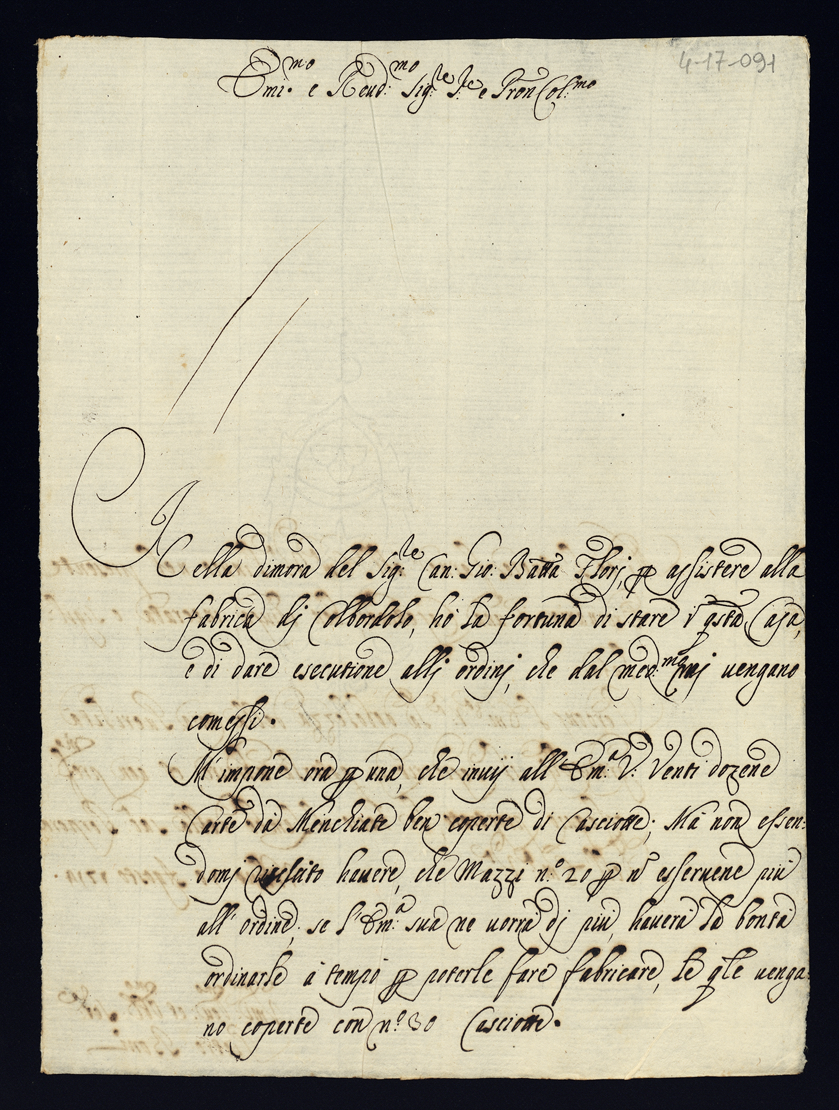 4-17-091
Em:mo e Reud:mo Sig:re P:re e Pron Col:mo
Nella dimora del Sig:re Can: Gio: Batta Florj, p assistere alla
fabrica dj Colbordolo, hò la fortuna di stare ī qsta Casa,
e di dare esecutione allj ordinj, che dal med:mo mj uengano
comessi.
M'impone ora p una, che inuij all' Em:a V: Venti dozene
Carte da Menchiate ben coperte di Casciotte; Mà non essen:
domj riuscito hauere, che Mazzi n.º 20 p nō esseruene più
all' ordine; se l' Em:a sua ne uorrà dj più, hauerà la bontà
ordinarle à tempo p poterle fare fabricare, le qle uenga:
no coperte con n.º 30 Casciotte.